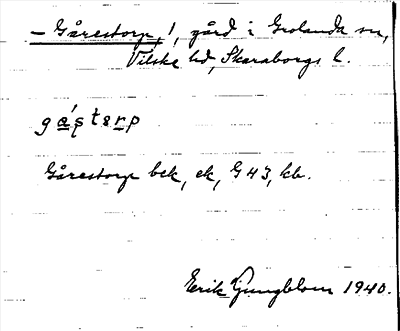 – Gårestorp, 1, gård i Grolanda sn,
Vilske hd, Skaraborgs l.
Gårestorp bek, ek, G 43, kb.
Erik Ljungblom 1940.